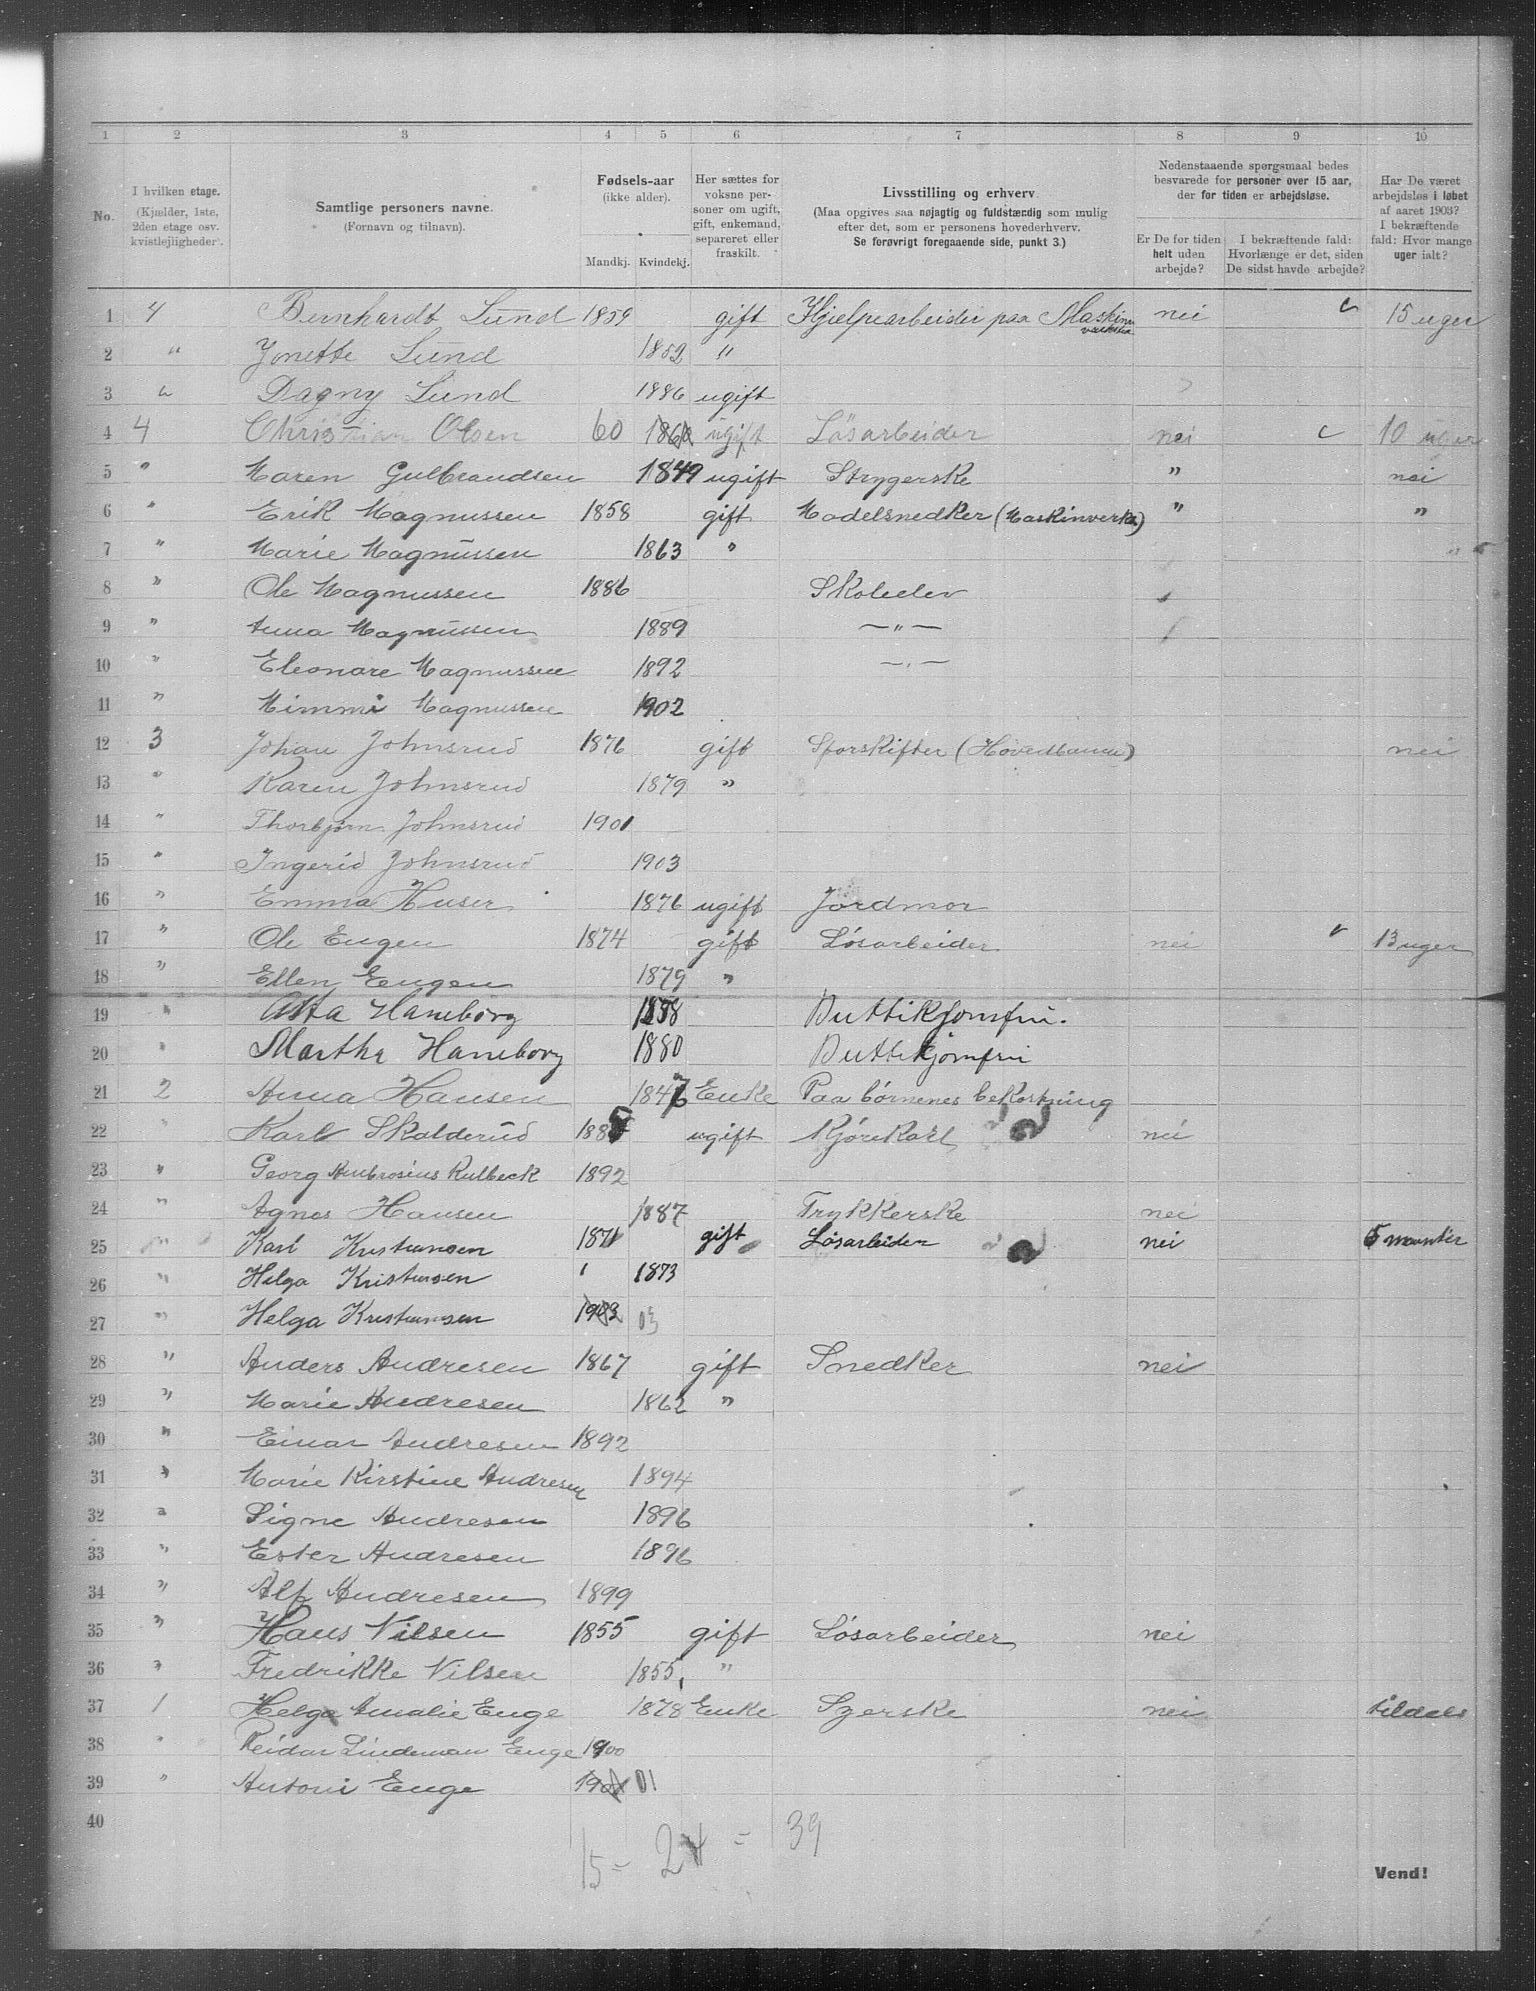 1 2 3 4 5 6 7 8 9 10
No.
I hvilken etage.
(Kjælder, 1ste,
2den etage osv.
kvistleiligheder).
Samtlige personers navne.
(Fornavn og tilnavn).
Fødsels-aar
(ikke alder).
Mandkj. Kvindekj.
Her sættes for
voksne per-
soner om ugift,
gift, enkemand,
separeret eller
fraskilt.
Livsstilling og erhverv.
(Maa opgives saa nøjagtig og fuldstændig som mulig
efter det, som er personens hovederhverv.
Se forøvrigt foregaaende side, punkt 3.)
Nedenstaaende spørgsmaal bedes
besvarede for personer over 15 aar,
der for tiden er arbejdsløse.
Er De for tiden
helt uden
arbejde?
I bekræftende fald:
Hvorlænge er det, siden
De sidst havde arbejde?
Har De været
arbejdsløs i løbet
af aaret 1903?
I bekræftende
fald: Hvor mange
uger ialt?
1 4 Bernhardt Lund 1859 gift Hjelpearbeider paa Maskin nei 15 uger
2 " Jonette Lund 1852 "
3 " Dagny Lund 1886 ugift
4 4 Christian Olsen 60 1860 ugift Løsarbeider nei 10 uger
5 " Maren Gulbrandsen 1849 ugift Strygerske " nei
6 " Erik Magnussen 1858 gift Modelsnedker (Maskinverks) " "
7 " Marie Magnussen 1863 "
8 " Ole Magnussen 1886 Skoleelev
9 " Anna Magnussen 1889 — " —
10 " Eleonare Magnussen 1892 — " —
11 " Mimmi Magnussen 1902
12 3 Johan Johnsrud 1876 gift Sporskifter (Hovedbanen) nei
13 " Karen Johnsrud 1879 "
14 " Thorbjørn Johnsrud 1901
15 " Ingerid Johnsrud 1903
16 " Emma Huser 1876 ugift Jordmor
17 " Ole Engen 1874 gift Løsarbeider nei 13 uger
18 " Ellen Engen 1879 "
19 " Asta Haneborg 1888 Buttikjomfru.
20 " Martha Haneborg 1880 Buttikjomfru
21 2 Anna Hansen 1847 Enke Paa børnenes bekostning
22 " Karl Skolderud 1885 ugift Kjørekarl nei
23 " Georg Ambrosius Kulbeck 1892
24 " Agnes Hansen 1887 Trykkerske nei
25 " Karl Kristiansen 1871 gift Løsarbeider nei 5 maanter
26 " Helga Kristiansen 1873
27 " Helga Kristiansen 1903 03
28 " Anders Andresen 1867 gift Snedker nei
29 " Marie Andresen 1862 "
30 " Einar Andresen 1892
31 " Marie Kirstine Andresen 1894
32 " Signe Andresen 1896
33 " Ester Andresen 1896
34 " Alf Andresen 1899
35 " Hans Nilsen 1855 gift Løsarbeider nei
36 " Fredrikke Nilsen 1855 "
37 1 Helga Amalie Enge 1878 Enke Syerske nei tildels
38 " Reidar Lindeman Enge 1900
39 " Antoni Enge 1901 01
40
15 - 24 = 39
Vend!